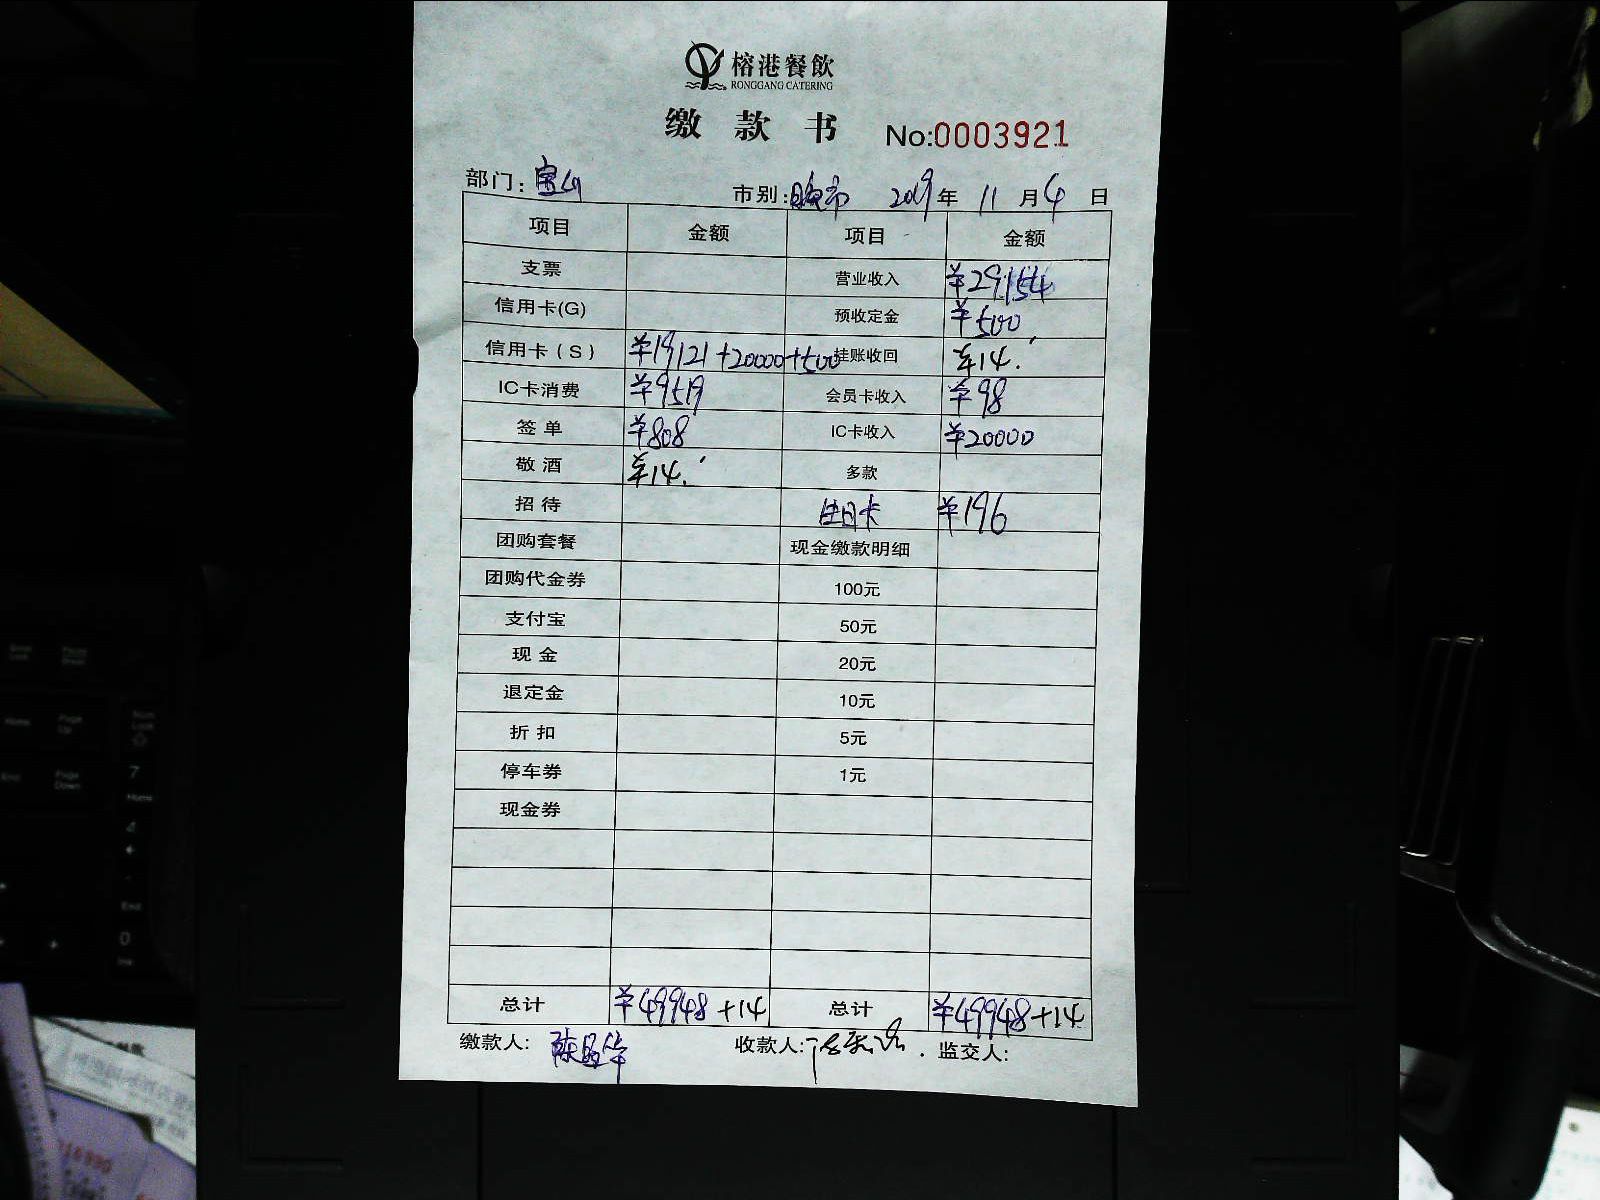 榕港餐飲
RONGGANG CATERING
缴款书 No:0003921
部门：宝山 市别：晚市 2019年 11月4日
项目 金额 项目 金额
支票 营业收入 ¥29154
信用卡(G) 预收定金 ¥500
信用卡（S） ¥19121+20000+500 挂账收回 ¥14.
IC卡消费 ¥9519 会员卡收入 ¥98
签单 ¥808 IC卡收入 ¥20000
敬酒 ¥14. 多款
招待 生日卡 ¥196
团购套餐 现金缴款明细
团购代金券 100元
支付宝 50元
现金 20元
退定金 10元
折扣 5元
停车券 1元
现金券
总计 ¥49948+14 总计 ¥49948+14
缴款人: 收款人: 监交人: